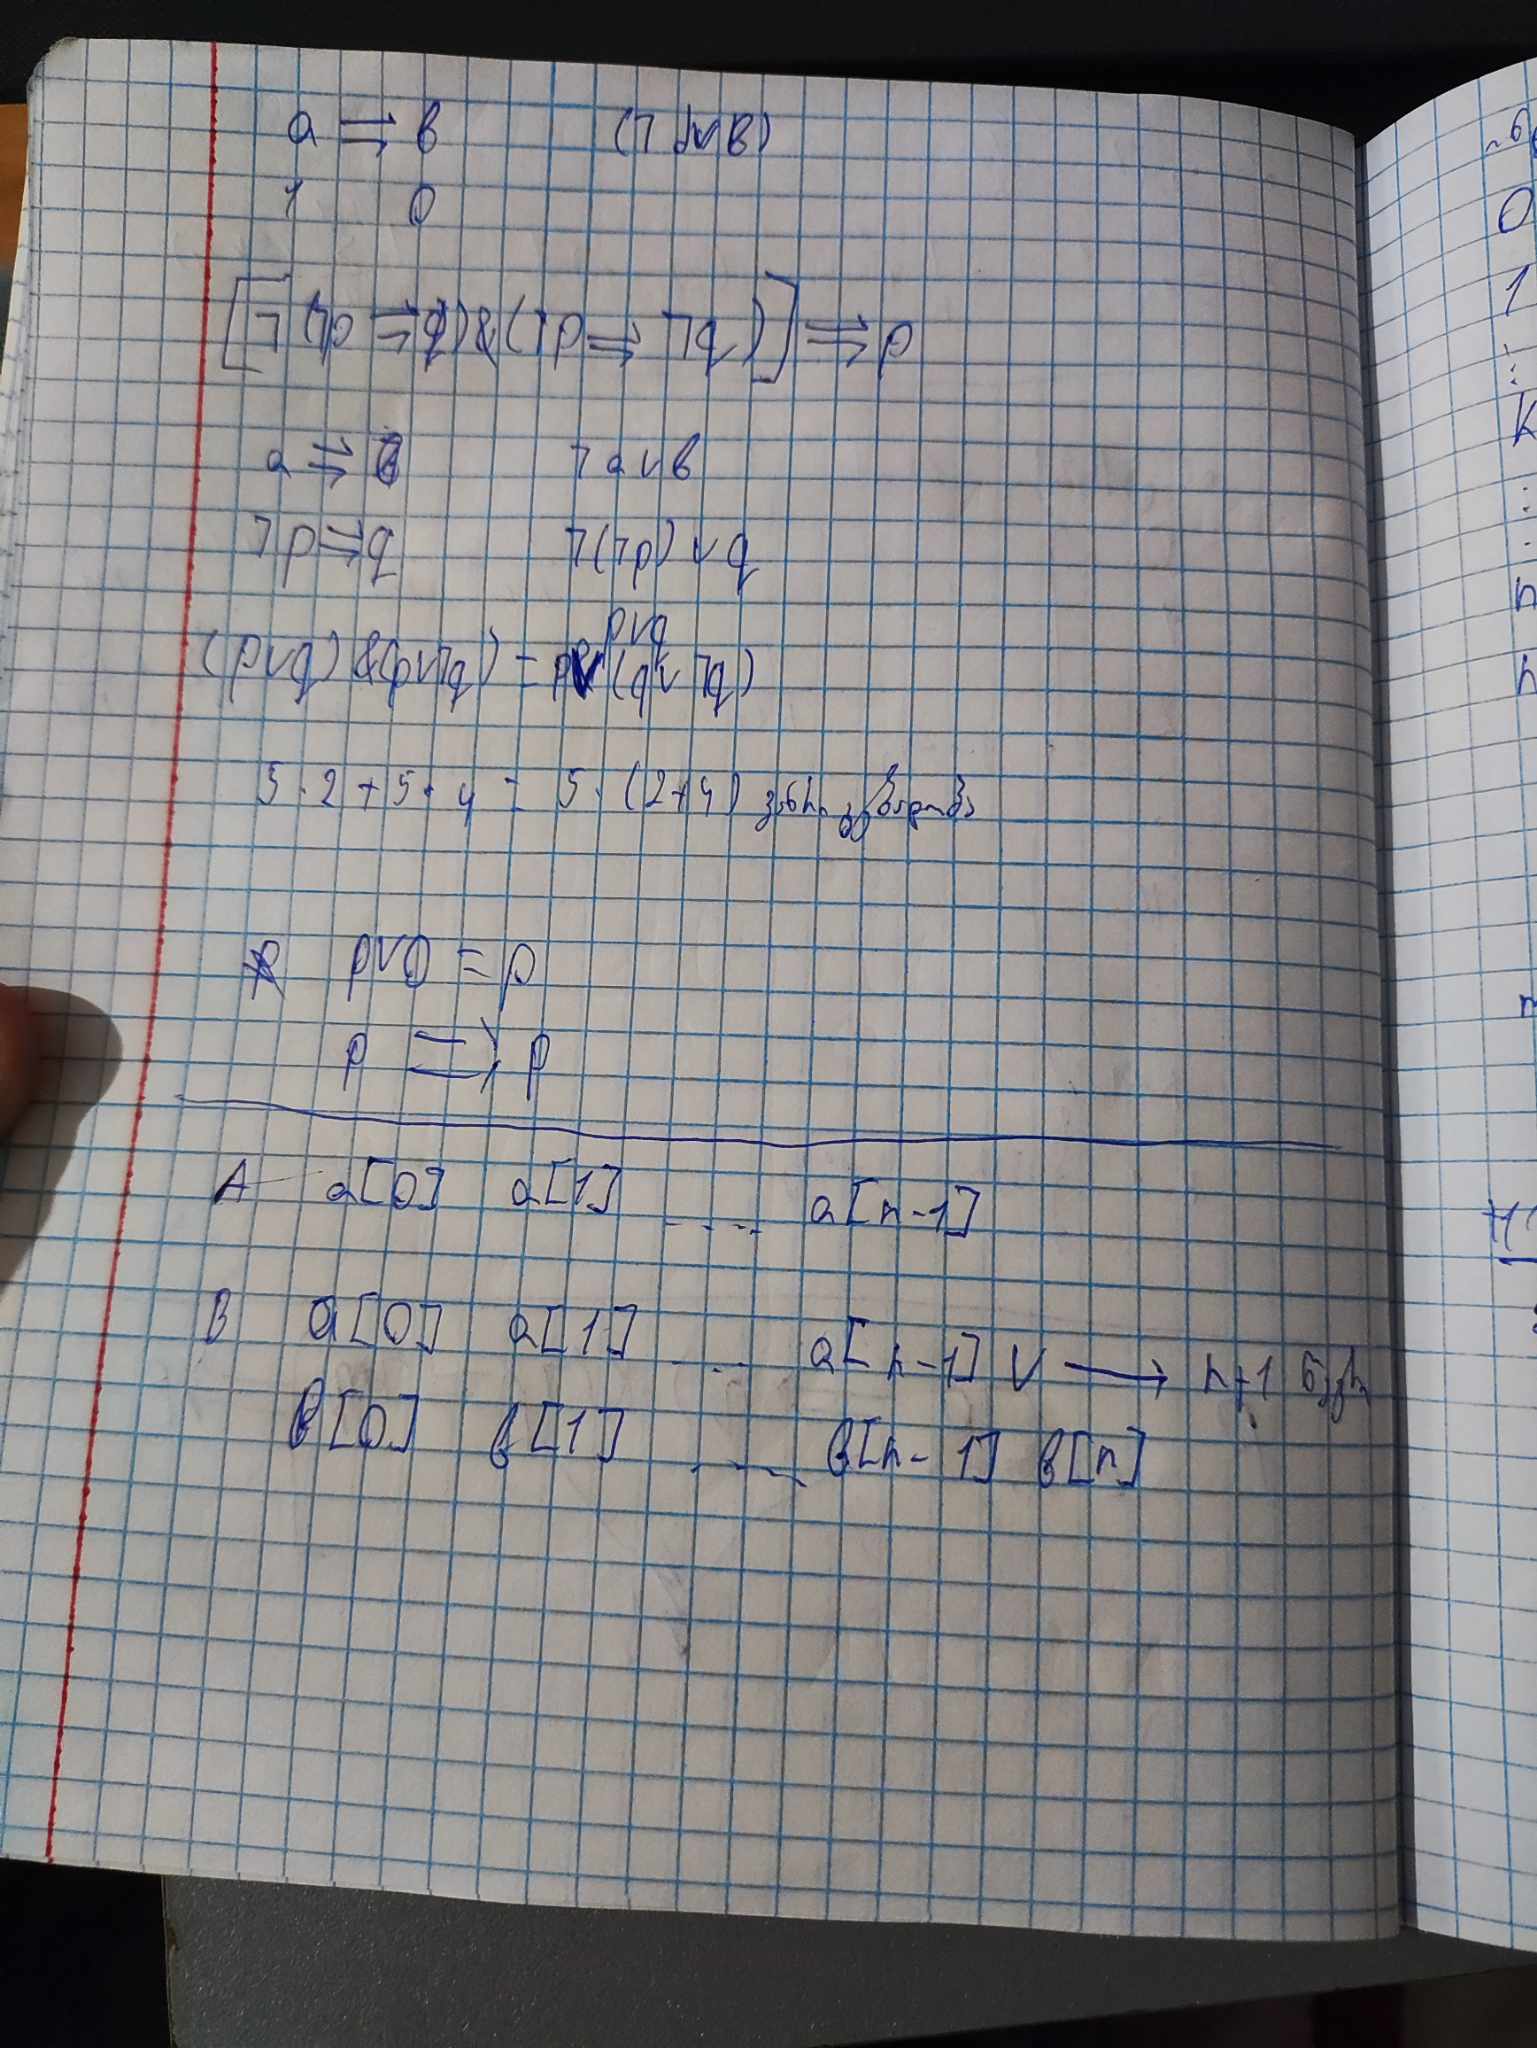 a ⇒ b (¬ A∨B)
1 0
[¬(¬p ⇒ q)&(¬p ⇒ ¬q)] ⇒ p
a ⇒ b ¬a∨b
¬p ⇒ q ¬(¬p)∨q
p∨q
(p∨q)&(p∨¬q) = p∨(q∨¬q)
5·2+5·4 = 5·(2+4)
p∨0 = p
p ⇒ p
A a[0] a[1] .... a[n-1]
B a[0] a[1] ... a[n-1] V → n+1
b[0] b[1] .... b[n-1] b[n]
0
1
k
n